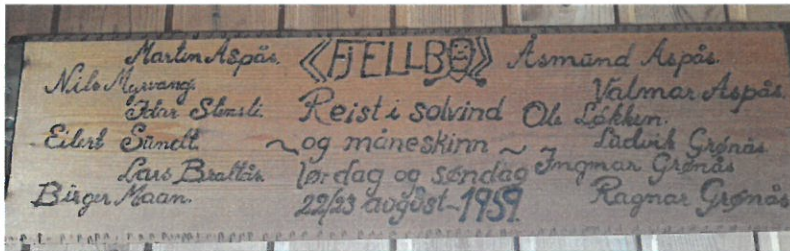 Martin Aspås.
Nils Myrvang.
Idar Stensli.
Eilert Sundt.
Lars Brattås.
Birger Maan.
《FJELLBO》
Reist i solvind
~og måneskinn~
lørdag og søndag
22/23 august-1959.
Åsmund Aspås.
Valmar Aspås.
Ole Løkken.
Ludvik Grønås
Ingmar Grønås
Ragnar Grønås